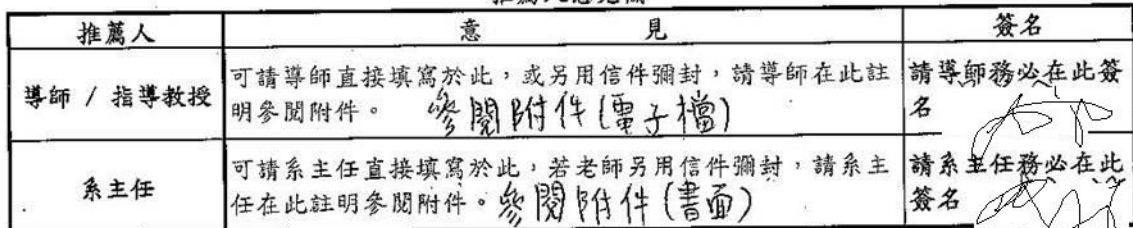 推薦人 意 見 簽名
導師 / 指導教授
可請導師直接填寫於此，或另用信件彌封，請導師在此註
明參閱附件。 參閱附件(電子檔)
請導師務必在此簽
名
系主任
可請系主任直接填寫於此，若老師另用信件彌封，請系主
任在此註明參閱附件。參閱附件(書面)
請系主任務必在此
簽名